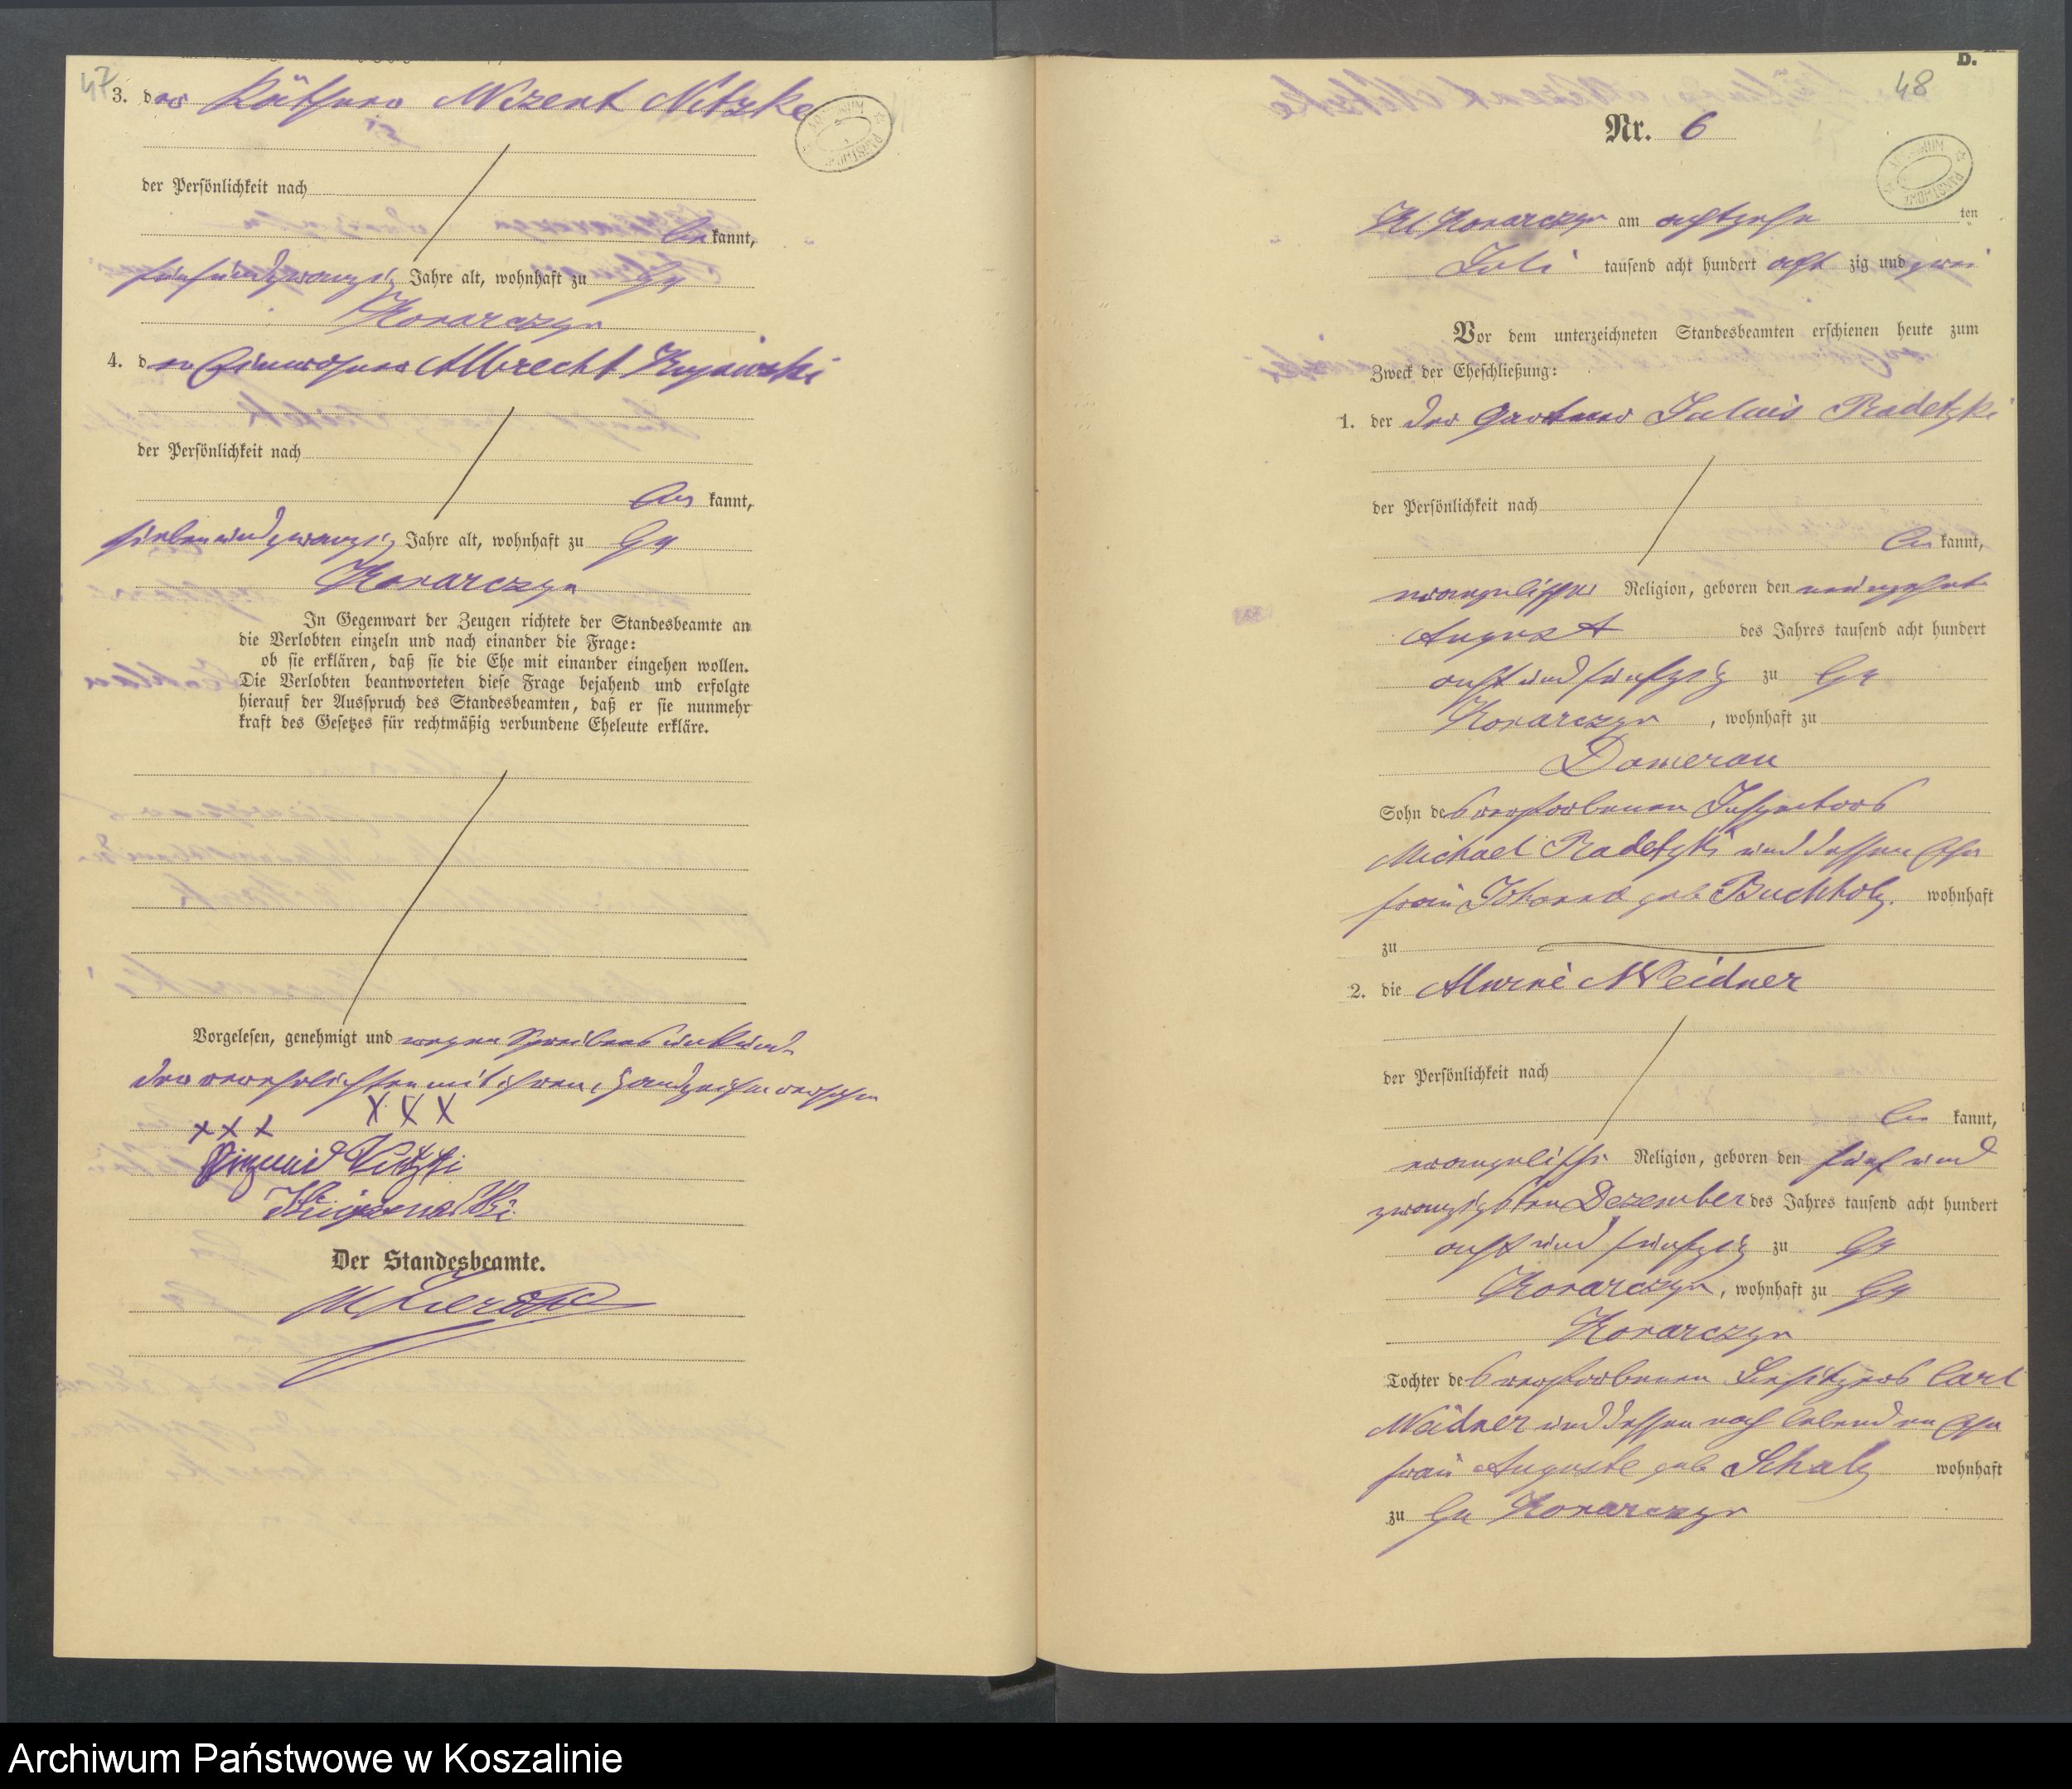 47
3. der Käthner Wizent Nitzke
der Persönlichkeit nach
be kannt,
fünfundzwanzig Jahre alt, wohnhaft zu Gr
Konarczyn
4. den Einwohner Albrecht Kujawski
der Persönlichkeit nach
be kannt,
siebenundzwanzig Jahre alt, wohnhaft zu Gr
Konarczyn
In Gegenwart der Zeugen richtete der Standesbeamte an
die Verlobten einzeln und nach einander die Frage:
ob sie erklären, daß sie die Ehe mit einander eingehen wollen.
Die Verlobten beantworteten diese Frage bejahend und erfolgte
hierauf der Ausspruch des Standesbeamten, daß er sie nunmehr
kraft des Gesetzes für rechtmäßig verbundene Eheleute erkläre.
Vorgelesen, genehmigt und wegen Schreibens unkund
der verehelichten mit ihren Handzeichen versehen
XXX XXX
Der Standesbeamte.
B.
48
Nr. 6
Kl Konarczyn am achtzehn ten
Juli tausend acht hundert acht zig und zwei
Vor dem unterzeichneten Standesbeamten erschienen heute zum
Zweck der Eheschließung:
1. der der Gärtner Julius Radetzki
der Persönlichkeit nach
be kannt,
evangelischer Religion, geboren den neunzehnt
August des Jahres tausend acht hundert
acht und fünfzig zu Gr
Konarczyn, wohnhaft zu
Damerau
Sohn des verstorbenen Inspectors
Michael Radetzki und dessen Ehe
frau Johanna geb Buchholz. wohnhaft
zu
2. die Alwine Weidner
der Persönlichkeit nach
be kannt,
evangelischer Religion, geboren den fünf und
zwanzigsten Dezember des Jahres tausend acht hundert
acht und fünfzig zu Gr
Konarczyn, wohnhaft zu Gr
Konarczyn
Tochter des verstorbenen Besitzers Carl
Weidner und dessen noch lebenden Ehe
frau Auguste geb Schalz wohnhaft
zu Gr Konarczyn
Archiwum Państwowe w Koszalinie